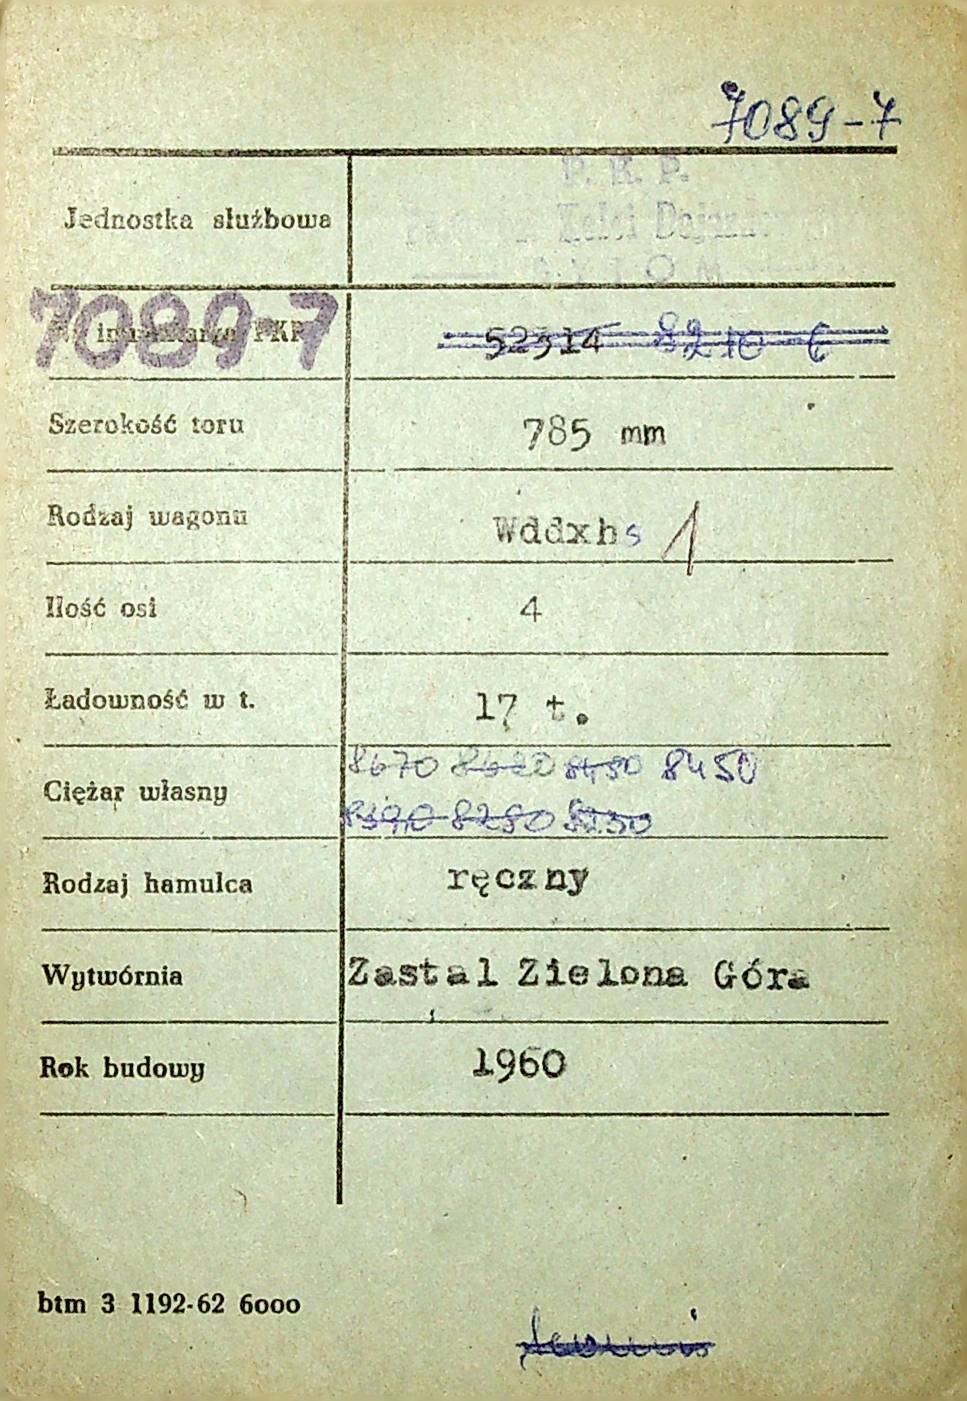 7089-7
P. K. P.
Jednostka służbowa
Kolei Dojazdow
BYTOM
7089-7
Nr inwentarza PKP 52314 8210 6
Szerokość toru 785 mm
Rodzaj wagonu Wddxhs 1
Ilość osi 4
Ładowność w t. 17 t.
8670 8420 8450 8450
Ciężar własny
8390 8280 8230
Rodzaj hamulca ręczny
Wytwórnia Zastal Zielona Góra
Rok budowy 1960
btm 3 1192-62 6000